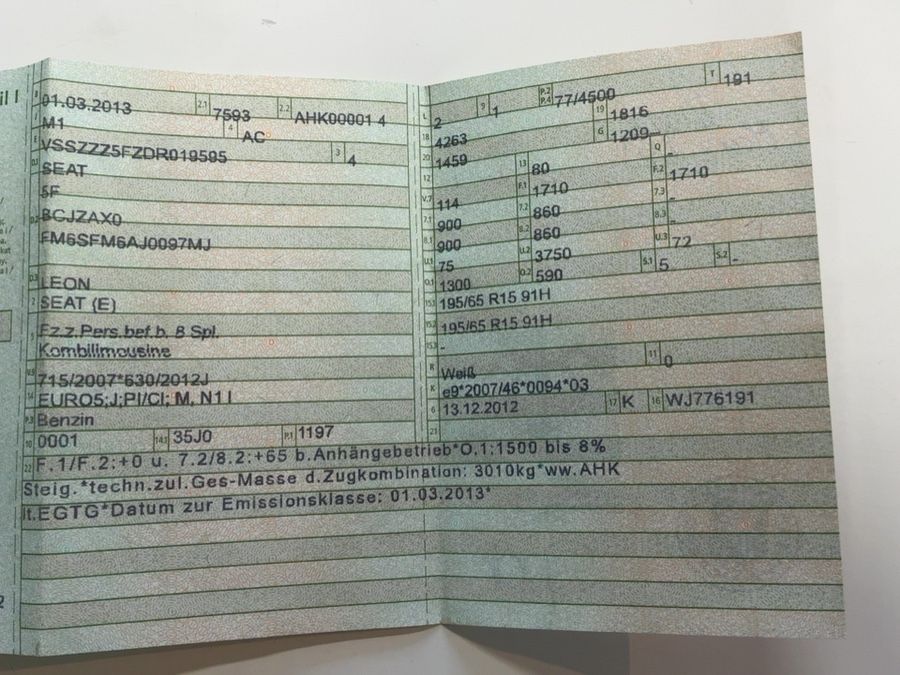 il I
B 01.03.2013 2.1 7593 2.2 AHK00001 4
J M1 4 AC
E VSSZZZ5FZDR019505 3 4
D.1 SEAT
5F
D.2 BCJZAX0
FM6SFM6AJ0097MJ
D.3 LEON
2 SEAT (E)
5 Fz.z.Pers.bef.b. 8 Spl.
Kombilimousine
V.9 715/2007*630/2012J
14 EURO5;J;PI/CI; M, N1 I
P.3 Benzin
10 0001 14.1 35J0 P.1 1197
L 2 9 1 P.2 P.4 77/4500 T 191
18 4263 19 1816
20 1459 G 1209-
12 13 80 Q -
V.7 114 F.1 1710 F.2 1710
7.1 900 7.2 860 7.3 -
8.1 900 8.2 860 8.3 -
U.1 75 U.2 3750 U.3 72
O.1 1300 O.2 590 S.1 5 S.2 -
15.1 195/65 R15 91H
15.2 195/65 R15 91H
15.3 -
R Weiß 11 0
K e9*2007/46*0094*03
6 13.12.2012 17 K 16 WJ776191
21
22 F.1/F.2:+0 u. 7.2/8.2:+65 b.Anhängebetrieb*O.1:1500 bis 8%
Steig.*techn.zul.Ges-Masse d.Zugkombination: 3010kg*ww.AHK
lt.EGTG*Datum zur Emissionsklasse: 01.03.2013*